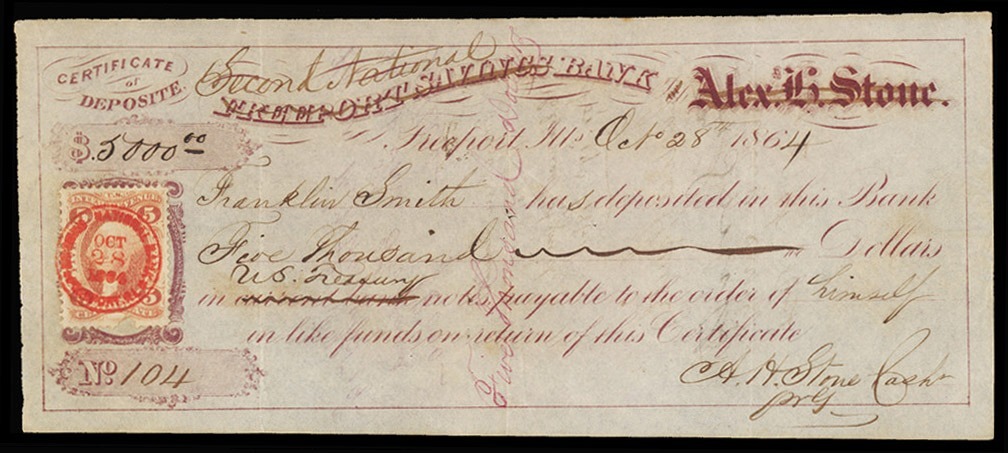 CERTIFICATE
of
DEPOSITE.
Second National
FREEPORT SAVINGS BANK
Alex. H. Stone.
$5000 00
Freeport Ills Oct 28th 1864
Franklin Smith has deposited in this Bank
Five Thousand Dollars
U.S. Treasury
in notes, payable to the order of himself
in like funds on return of this Certificate
No 104
A. H. Stone Cashr
Five Thousand dollars
5 5
NATIONAL BANK
OCT
28
1864
5 5